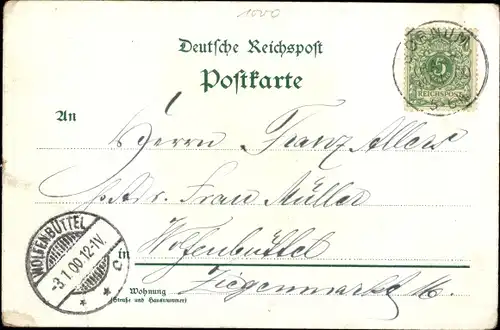 1000
Deutsche Reichspost
Postkarte
5
REICHSPOST
An
Herrn Franz Allers
Adr. Frau Müller
WOLFENBÜTTEL
-3.1.00.12-1V.
C
in
Wolfenbüttel
Ziegenmarkt
Wohnung
(Straße und Hausnummer)